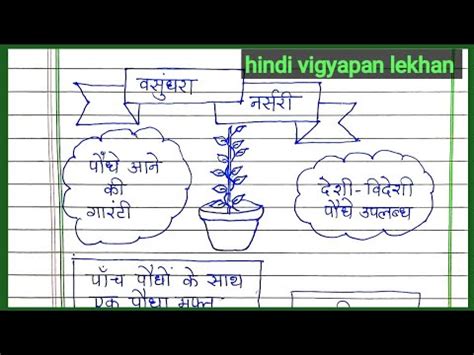 hindi vigyapan lekhan
वसुंधरा
नर्सरी
पौधे आने
की
गारंटी
देशी-विदेशी
पौधे उपलब्ध
पाँच पौधों के साथ
एक पौधा मुफ्त